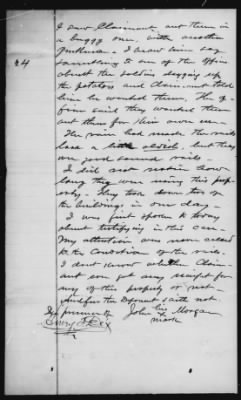 I saw Claimant out there in
a buggy once with another
gentleman. I heard him say
something to one of the officers
# 4
about the soldiers digging up
the potatoes and Claimant told
him he wanted them. The of-
ficer said they wanted them
out there for their own use.
The rain had made the rails
look a little oldish, but they
were good sound rails.
I did not notice how
long they were using this prop-
erty. They took down two of
the buildings in one day.
I was first spoken to today
about testifying in this case.
My attention was never called
to the condition of the rails.
I dont know whether Claim-
ant ever got any receipt for
any of this property or not.
And further Deponent saith not.
In presence of
John his Morgan
mark